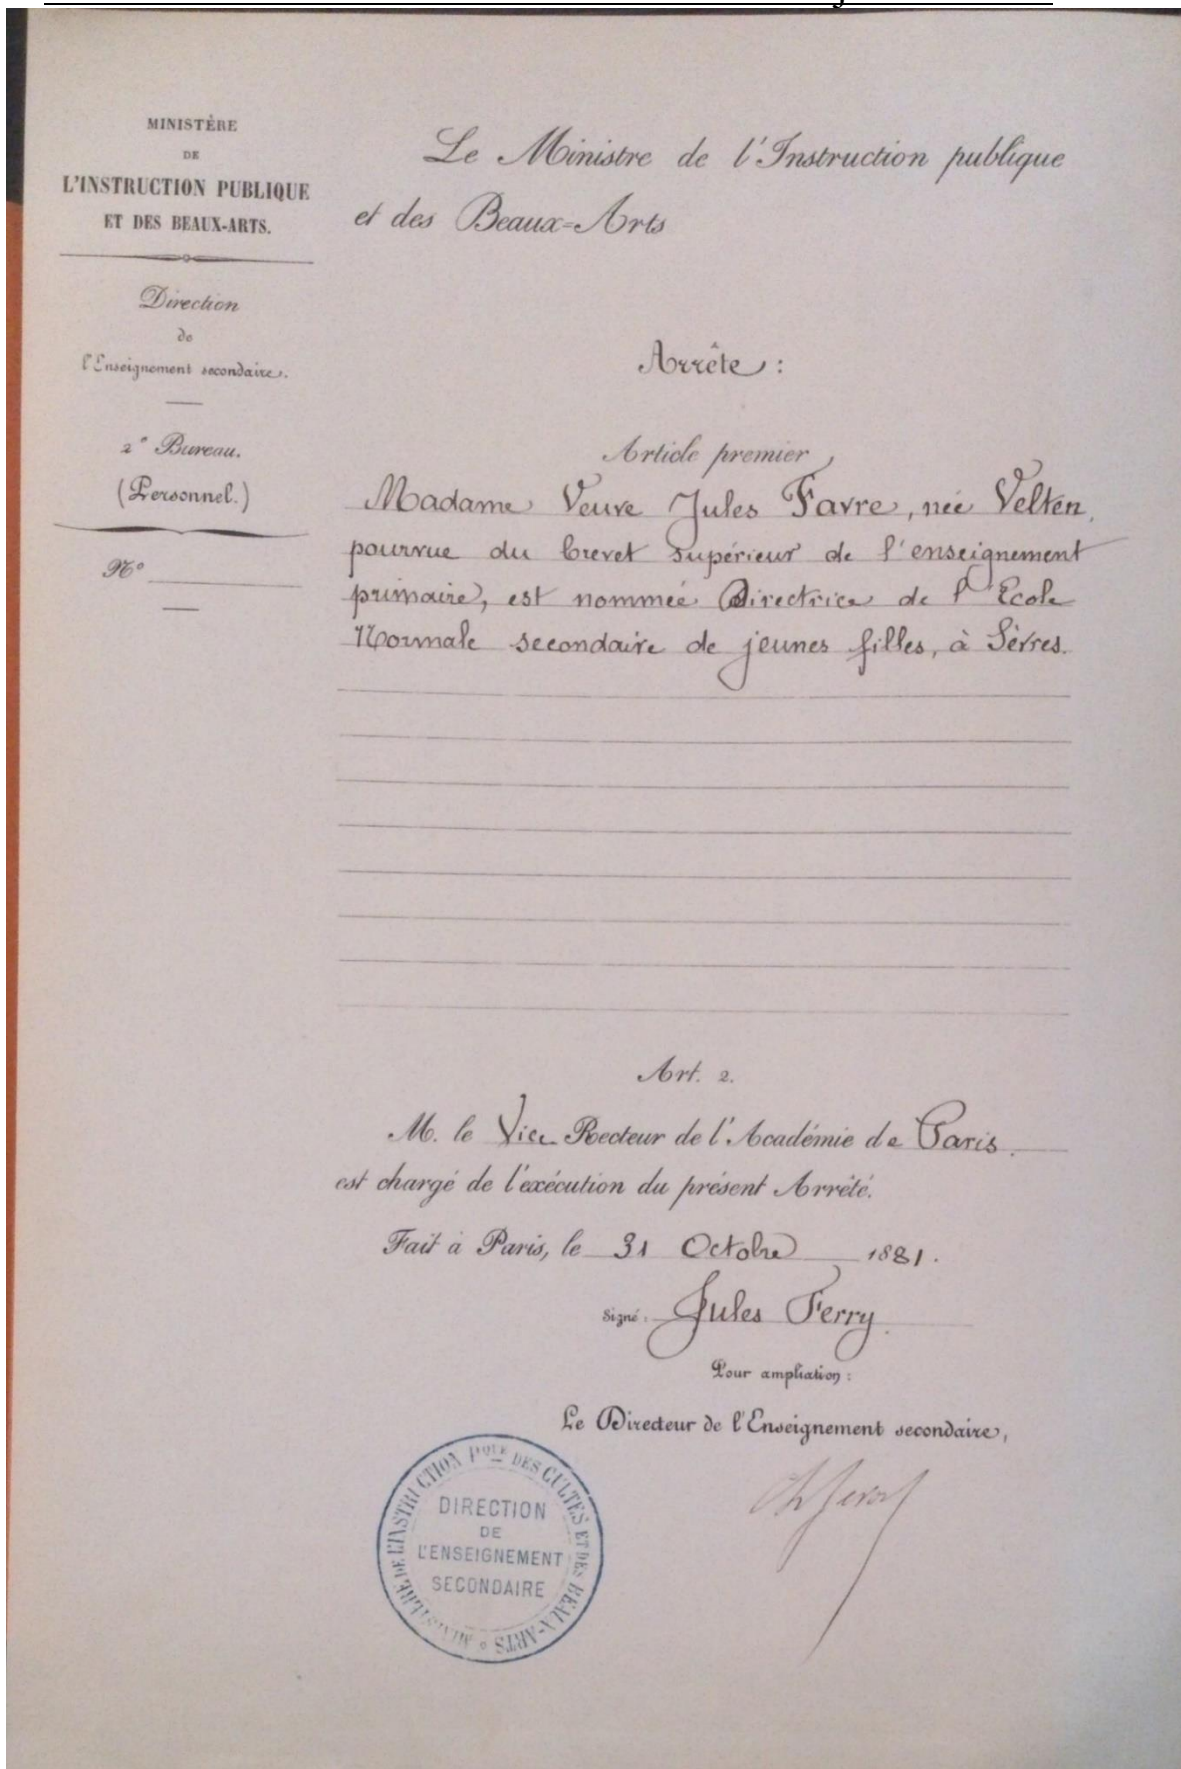 MINISTÈRE
DE
L'INSTRUCTION PUBLIQUE
ET DES BEAUX-ARTS.
Direction
de
l'Enseignement secondaire.
2e Bureau.
(Personnel.)
No
Le Ministre de l'Instruction publique
et des Beaux=Arts
Arrête :
Article premier
Madame Veuve Jules Favre, née Velten,
pourvue du brevet supérieur de l'enseignement
primaire, est nommée Directrice de l'Ecole
Normale secondaire de jeunes filles, à Sèvres.
Art. 2.
M. le Vice Recteur de l'Académie de Paris
est chargé de l'exécution du présent Arrêté.
Fait à Paris, le 31 Octobre 1881.
Signé : Jules Ferry.
Pour ampliation :
Le Directeur de l'Enseignement secondaire,
MINISTÈRE DE L'INSTRUCTION PQUE DES CULTES ET DES BEAUX-ARTS
DIRECTION
DE
L'ENSEIGNEMENT
SECONDAIRE